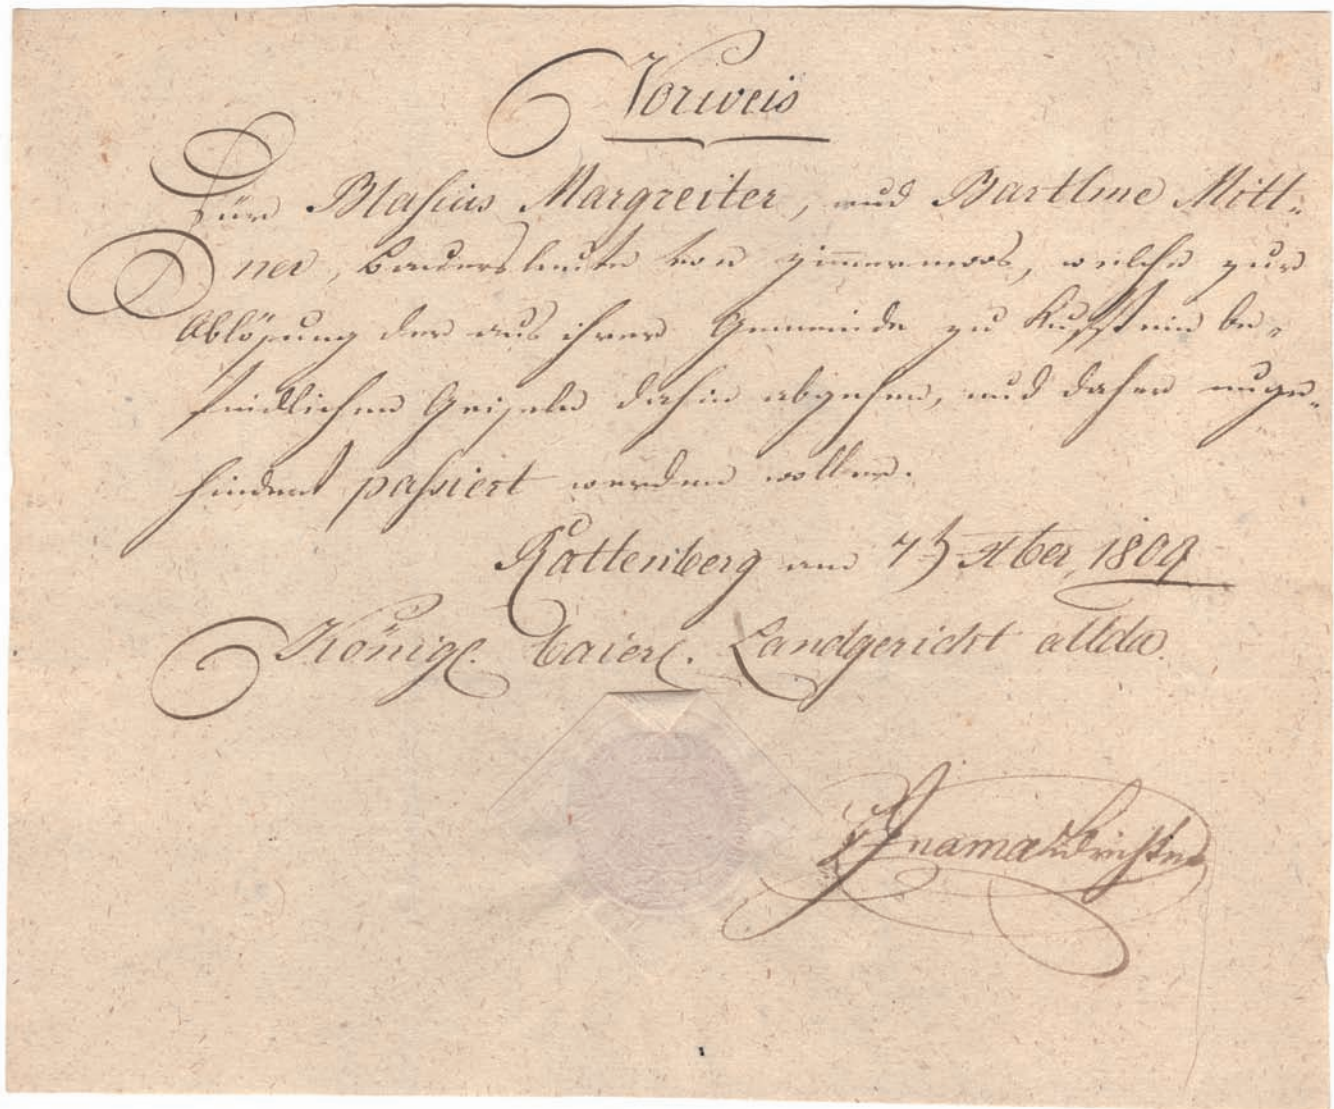 Vorweis
Für Blasius Margreiter, und Bartlme Mitt-
ner, Bauersleute von Zimmermoos, welche zur
Ablösung der aus ihrer Gemeinde zu Kufstein be-
findlichen Geiseln dahin abgehen, und daher unge-
hindert passiert werden wollen.
Rattenberg am 7t Xber 1809
Königl. baier. Landgericht allda.
Inama Ldrichter